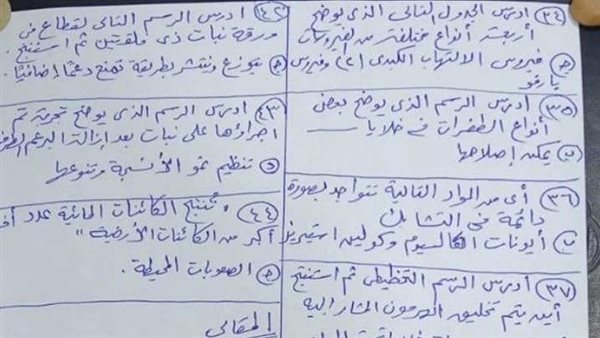 ٣٤ ادرس الجدول التالى الذى يوضح
أربعة أنواع مختلفة من الفيروسات
ج فيروس الالتهاب الكبدى (C) وفيروس
بارفو
٣٥ ادرس الرسم الذى يوضح بعض
أنواع الطفرات فى خلايا
ب يمكن إصلاحها
٣٦ أى من المواد التالية تتواجد بصورة
دائمة فى التشابك
ب أيونات الكالسيوم وكولين استيريز
٣٧ ادرس الرسم التخطيطى ثم استنتج
أين يتم تخليق الهرمون المشار إليه
٤٢ ادرس الرسم التالى لقطاع فى
ورقة نبات ذى فلقتين ثم استنتج
موزع ومنتشر بطريقة تمنح دعمًا إضافيًا.
٤٣ ادرس الرسم الذى يوضح تجربة تم
اجرائها على نبات بعد إزالة البرعم
د تنظيم نمو الأنسجة وتنوعها
٤٤ "تنتج الكائنات المائية عدد
أكبر من الكائنات الأرضية"
ج الصعوبات المحيطة.
المقالى